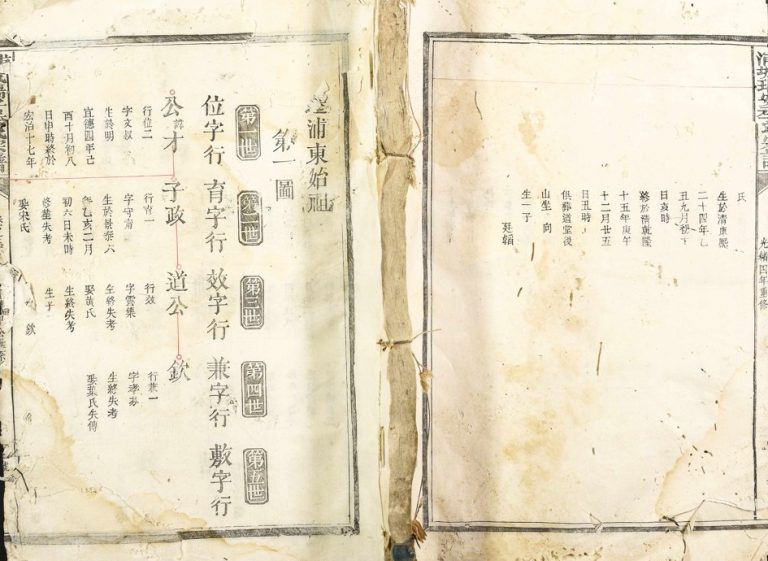 氏
生於清康熙
二十四年乙
丑九月初丁
日亥時
終於清乾隆
十五年庚午
十二月廿五
日丑時
俱葬道堂後
山坐 向
生一子
廷韜
光緒四年重修
浦東始祖
第一圖
第一世
第二世
第三世
第四世
第五世
位字行
育字行
效字行
兼字行
敷字行
公才
子政
道公
欽
行位二
字文叔
生於明
宣德四年己
酉十月初八
日申時終於
宏治十七年
行育一
字守甯
生於景泰六
年乙亥二月
初六日未時
終葬失考
娶宋氏
行效
字雲集
生終失考
娶黃氏
生終失考
生子
欽
行兼一
生終失考
娶葉氏失傳